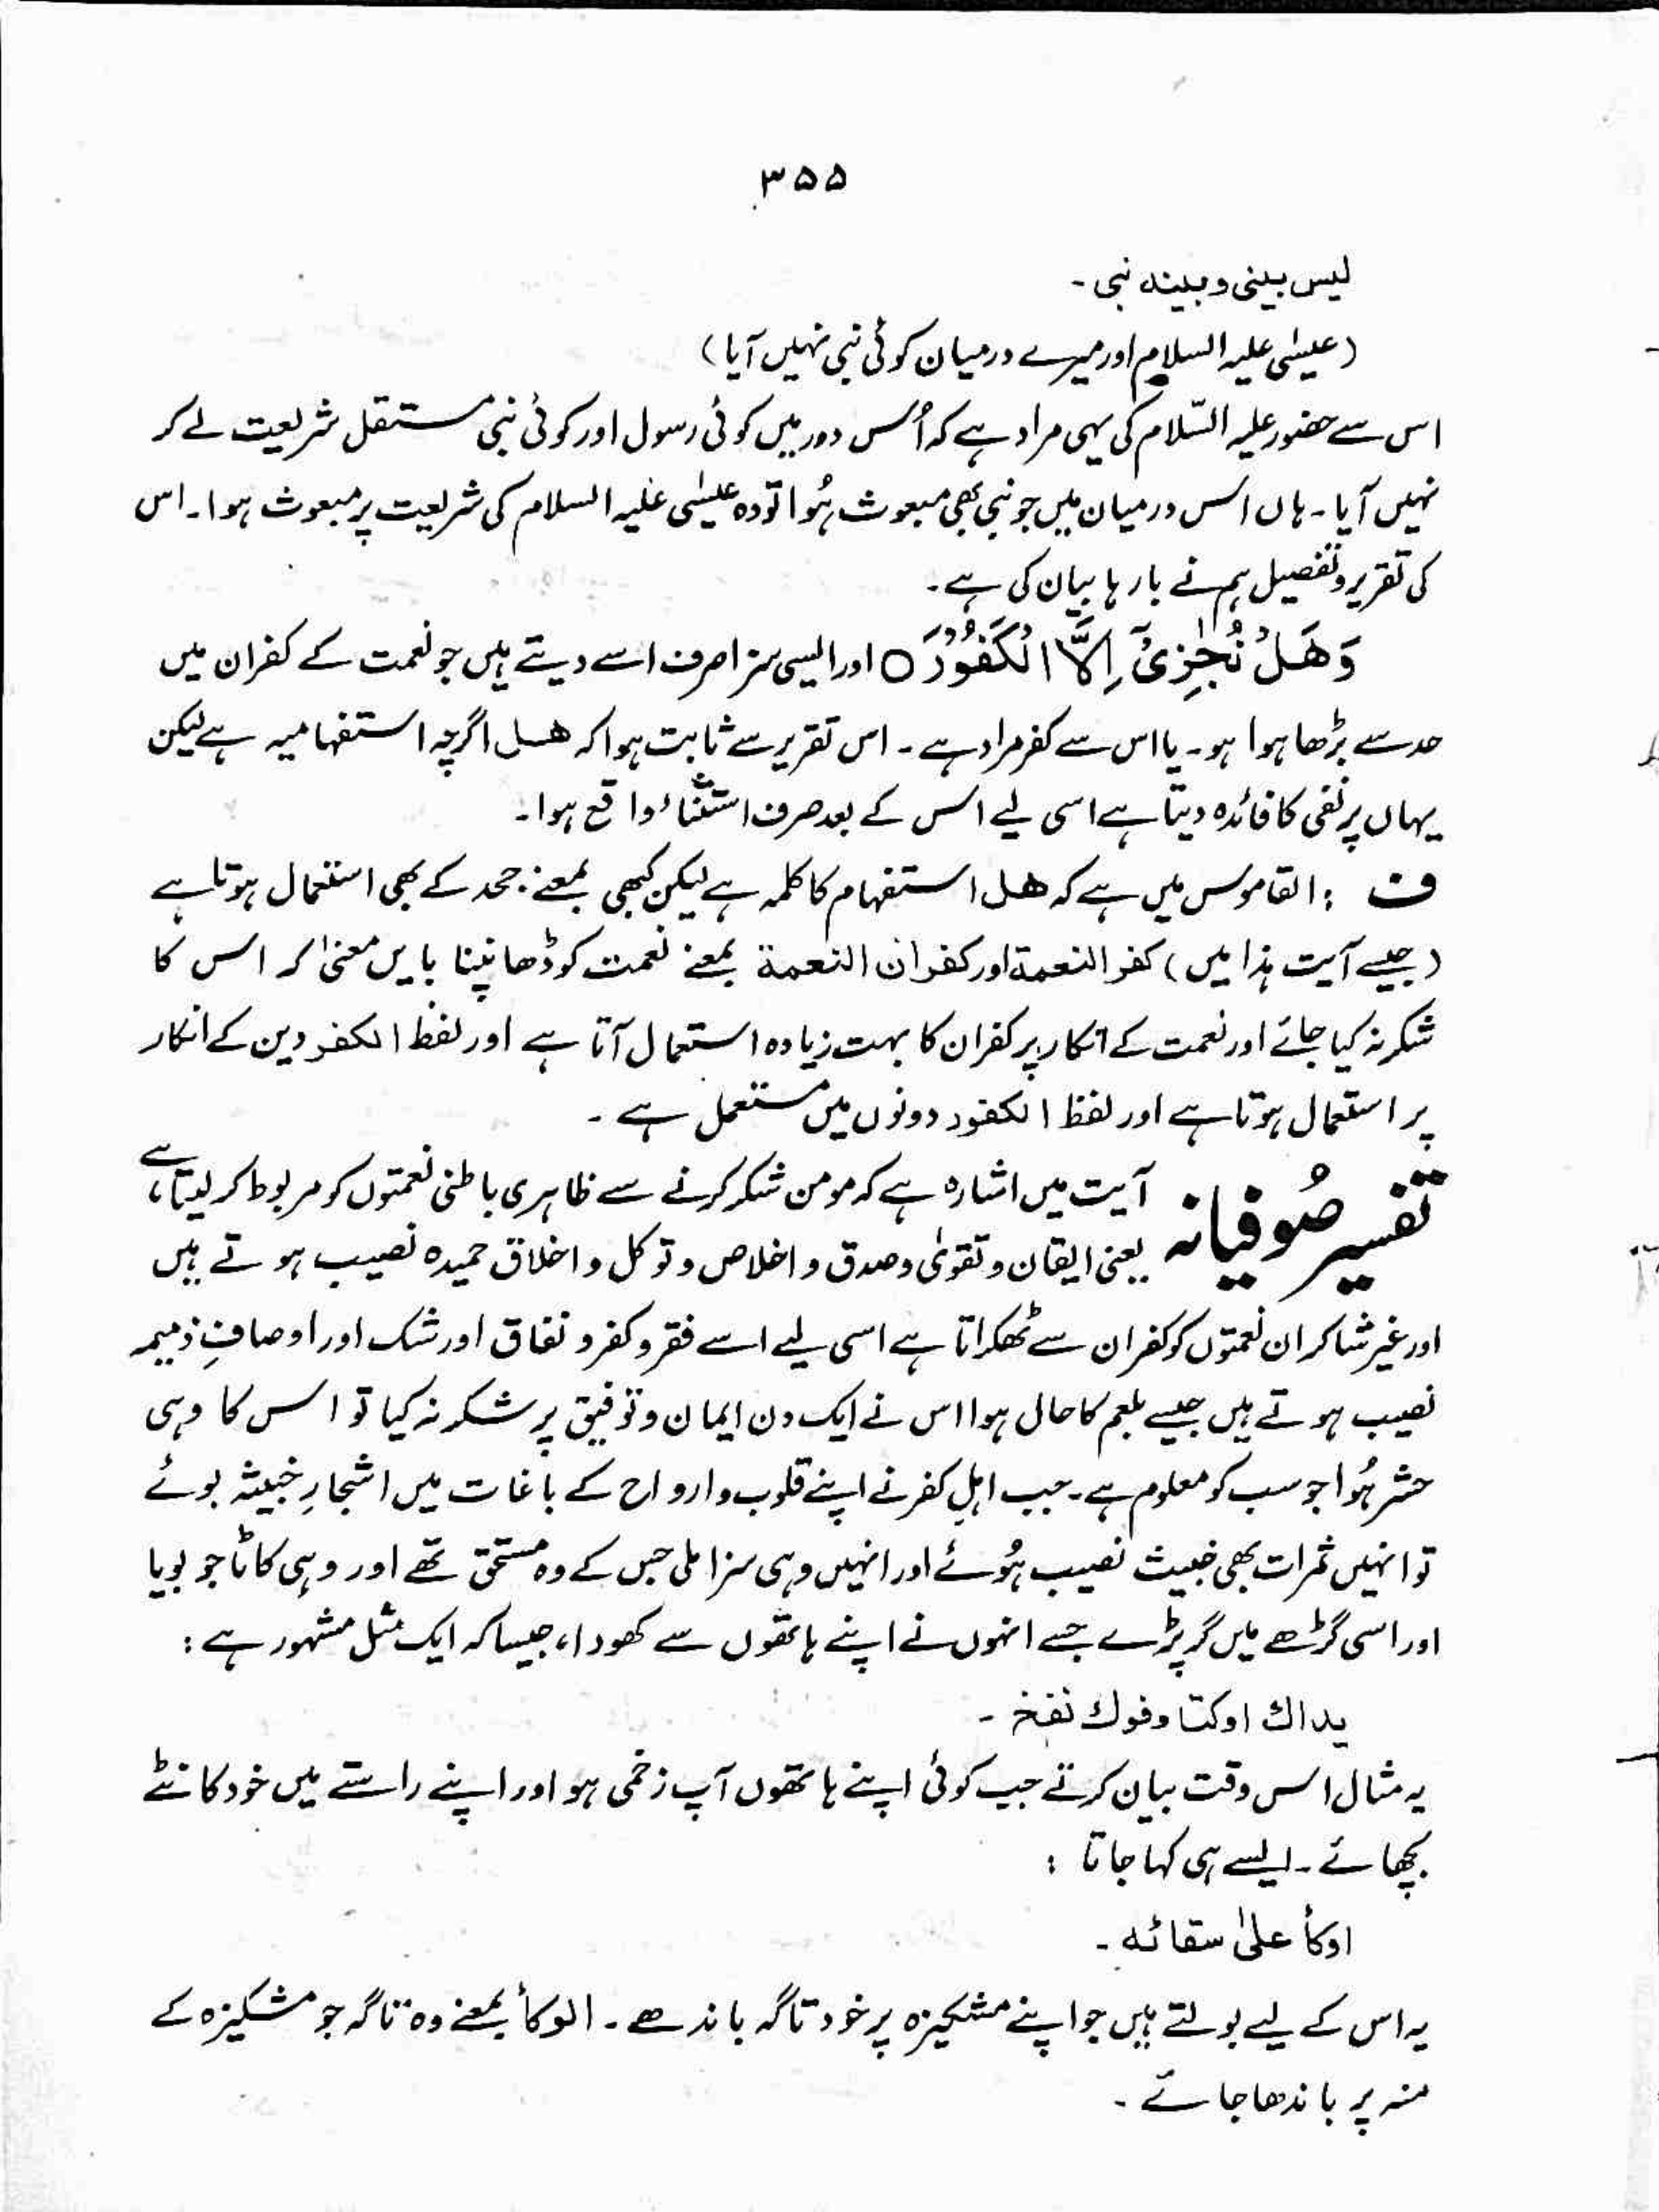 ۳۵۵
لیس بینی و بینه نبی ۔
(عیسٰی علیہ السلام اور میرے درمیان کوئی نبی نہیں آیا)
اس سے حضور علیہ السّلام کی یہی مراد ہے کہ اُس دور میں کوئی رسول اور کوئی نبی مستقل شریعت لے کر
نہیں آیا۔ ہاں اس درمیان میں جو نبی بھی مبعوث ہُوا تو وہ عیسٰی علیہ السلام کی شریعت پر مبعوث ہوا۔ اس
کی تقریر و تفصیل ہم نے بارہا بیان کی ہے۔
وَهَلْ نُجٰزِیْٓ اِلَّا الْكَفُوْرَ ○ اور ایسی سزا صرف اسے دیتے ہیں جو نعمت کے کفران میں
حد سے بڑھا ہوا ہو۔ یا اس سے کفر مراد ہے ۔ اس تقریر سے ثابت ہوا کہ هل اگرچہ استفہامیہ ہے لیکن
یہاں پر نفی کا فائدہ دیتا ہے اسی لیے اس کے بعد صرف استثناء واقع ہوا۔
ف : القاموس میں ہے کہ هل استفہام کا کلمہ ہے لیکن کبھی بمعنے جحد کے بھی استعمال ہوتا ہے
(جیسے آیت ہذا میں) کفر النعمة اور کفران النعمة بمعنے نعمت کو ڈھانپنا بایں معنیٰ کہ اس کا
شکر نہ کیا جائے اور نعمت کے انکار پر کفران کا بہت زیادہ استعمال آتا ہے اور لفظ الکفر دین کے انکار
پر استعمال ہوتا ہے اور لفظ الکفور دونوں میں مستعمل ہے ۔
تفسیر صُوفیانہ آیت میں اشارہ ہے کہ مومن شکر کرنے سے ظاہری باطنی نعمتوں کو مربوط کر لیتا ہے،
یعنی ایقان و تقویٰ و صدق و اخلاص و توکل و اخلاق حمیدہ نصیب ہوتے ہیں
اور غیر شاکر ان نعمتوں کو کفران سے ٹھکراتا ہے اسی لیے اسے فقر و کفر و نفاق اور شک اور اوصافِ ذمیمہ
نصیب ہوتے ہیں جیسے بلعم کا حال ہوا اس نے ایک دن ایمان و توفیق پر شکر نہ کیا تو اس کا وہی
حشر ہُوا جو سب کو معلوم ہے۔ جب اہلِ کفر نے اپنے قلوب و ارواح کے باغات میں اشجارِ خبیثہ بوئے
تو انہیں ثمرات بھی خبیث نصیب ہُوئے اور انہیں وہی سزا ملی جس کے وہ مستحق تھے اور وہی کاٹا جو بویا
اور اسی گڑھے میں گر پڑے جسے انہوں نے اپنے ہاتھوں سے کھودا، جیسا کہ ایک مثل مشہور ہے :
یداك اوکتا وفوك نفخ ۔
یہ مثال اس وقت بیان کرتے جب کوئی اپنے ہاتھوں آپ زخمی ہو اور اپنے راستے میں خود کانٹے
بچھائے ۔ ایسے ہی کہا جاتا :
اوکأ علیٰ سقائه ۔
یہ اس کے لیے بولتے ہیں جو اپنے مشکیزہ پر خود تاگہ باندھے ۔ الوکأ بمعنے وہ تاگہ جو مشکیزہ کے
منہ پر باندھا جائے ۔